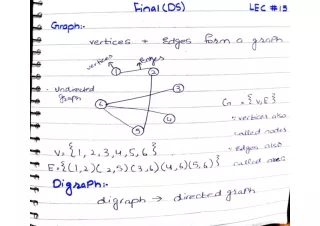 Final (DS) LEC # 15
Graph:-
vertices + Edges form a graph
vertices Edges
1 2
• undirected
graph
3
6
G = {V,E}
4
• vertices also
5
called nodes
V = {1, 2, 3, 4, 5, 6}
• Edges also
E = {(1,2)(2,5)(3,6)(4,6)(5,6)}
called arcs
Digraph:-
digraph → directed graph